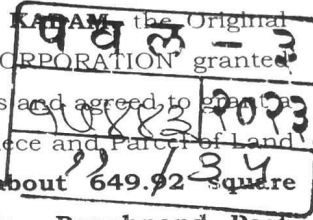 KADAM, the Original
पवल - ३
ORPORATION' granted
s and agreed to grant a
१५४४३ २०२३
iece and Parcel of Land
११ / ३५
about 649.92 square